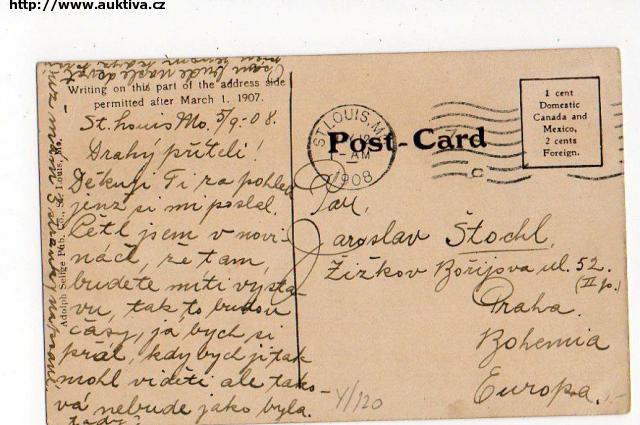 http://www.auktiva.cz
Writing on this part of the address side
permitted after March 1, 1907.
St. Louis Mo. 5/9-08.
Drahý příteli!
Děkuji Ti za pohled
jenž si mi poslal.
Četl jsem v novi-
nách, že tam
budete míti výsta-
vu, tak to budou
časy, já bych si
přál, kdy bych ji tak
mohl viděti ale tako-
vá nebude jako byla
tady
Adolph Selige Pub. Co., St. Louis, Mo.
Post-Card
ST. LOUIS, MO.
-AM
1908
1 cent
Domestic
Canada and
Mexico,
2 cents
Foreign.
Pan,
Jaroslav Štochl,
Žižkov Bořijova ul. 52.
(II p.)
Praha.
Bohemia
Europa.
Y/120